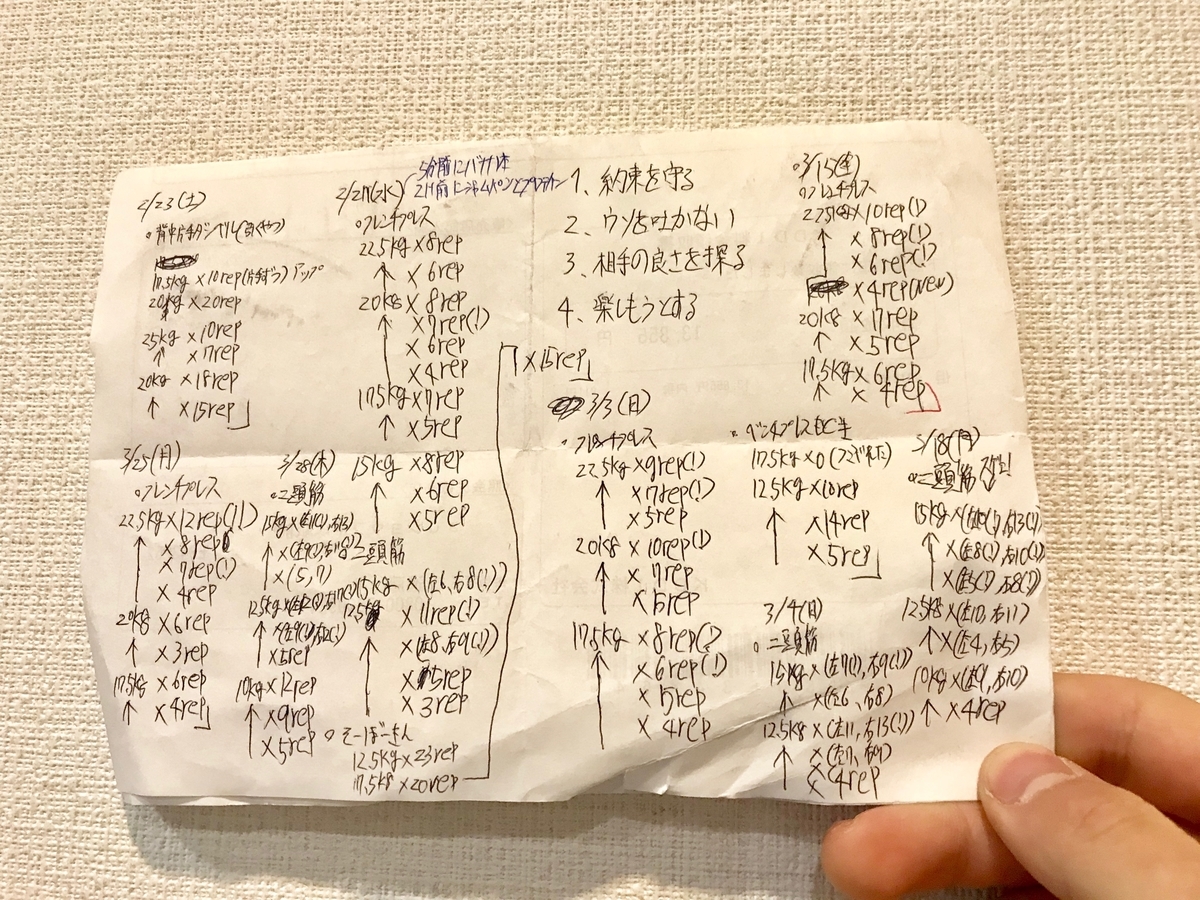 2/23(土)
17.5kg×10rep(片手ずつ)アップ
20kg×20rep
25kg×10rep
↑×7rep
20kg×18rep
↑×15rep」
2/27(水)
5分前にバナナ1本
2H前にジャムパンとプロテイン
。フレンチプレス
22.5kg×8rep
↑×6rep
20kg×8rep
↑×7rep(!)
×6rep
×4rep
17.5kg×7rep
↑×5rep
15kg×8rep
↑×6rep
×5rep
二頭筋
15kg×(左6、右8(!))
12.5kg×11rep(!)
↑×(左8、右9(!))
×5rep
×3rep
12.5kg×23rep
17.5kg×20rep
「×15rep」
1、約束を守る
2、ウソを吐かない
3、相手の良さを探る
4、楽しもうとする
3/3(日)
。フレンチプレス
22.5kg×9rep(!)
↑×7rep(!)
×5rep
20kg×10rep(!)
↑×7rep
×5rep
17.5kg×8rep(!)
↑×6rep(!)
×5rep
×4rep
17.5kg×0(つぶれた)
12.5kg×10rep
↑×14rep
×5rep」
3/4(月)
。二頭筋
15kg×(左7(!)、右9(!))
↑×(左6、右8)
12.5kg×(左11、右13(!))
↑×(左7、右9)
×4rep
3/15(金)
。フレンチプレス
22.5kg×10rep(!)
↑×8rep(!)
×6rep(!)
×4rep(new)
20kg×7rep
↑×5rep
17.5kg×6rep
↑×4rep」
3/18(月)
。二頭筋
15kg×(左10(!)、右13(!))
↑×(左8(!)、右10(!))
×(左5(!)、右8(!))
12.5kg×(左10、右11)
↑×(左4、右5)
10kg×(左9、右10)
↑×4rep
3/25(月)
。フレンチプレス
22.5kg×12rep(!!)
↑×8rep
×7rep(!)
×4rep
20kg×6rep
↑×3rep
17.5kg×6rep
↑×4rep」
3/28(木)
。二頭筋
15kg×(左11(!)、右13)
×(5,7)
↑×5rep
10kg×12rep
↑×9rep
×5rep